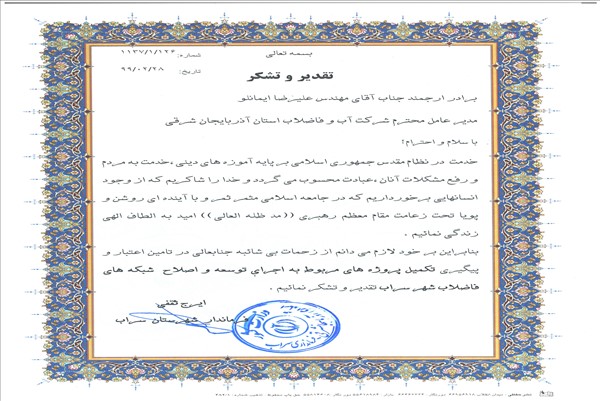 بسمه تعالی
شماره: ۱۱۳۷/۱/۱۲۶
تاریخ: ۹۹/۰۲/۲۸
تقدیر و تشکر
برادر ارجمند جناب آقای مهندس علیرضا ایمانلو
مدیر عامل محترم شرکت آب و فاضلاب استان آذربایجان شرقی
با سلام و احترام؛
خدمت در نظام مقدس جمهوری اسلامی بر پایه آموزه های دینی ،خدمت به مردم
و رفع مشکلات آنان ،عبادت محسوب می گردد و خدا را شاکریم که از وجود
انسانهایی برخورداریم که در جامعه اسلامی مثمر ثمر و با آینده ای روشن و
پویا تحت زعامت مقام معظم رهبری ((مد ظله العالی)) امید به الطاف الهی
زندگی نمائیم .
بنابراین بر خود لازم می دانم از زحمات بی شائبه جنابعالی در تامین اعتبار و
پیگیری تکمیل پروژه های مربوط به اجرای توسعه و اصلاح شبکه های
فاضلاب شهر سراب تقدیر و تشکر نمائیم .
ایرج ثقفی
فرماندار شهرستان سراب